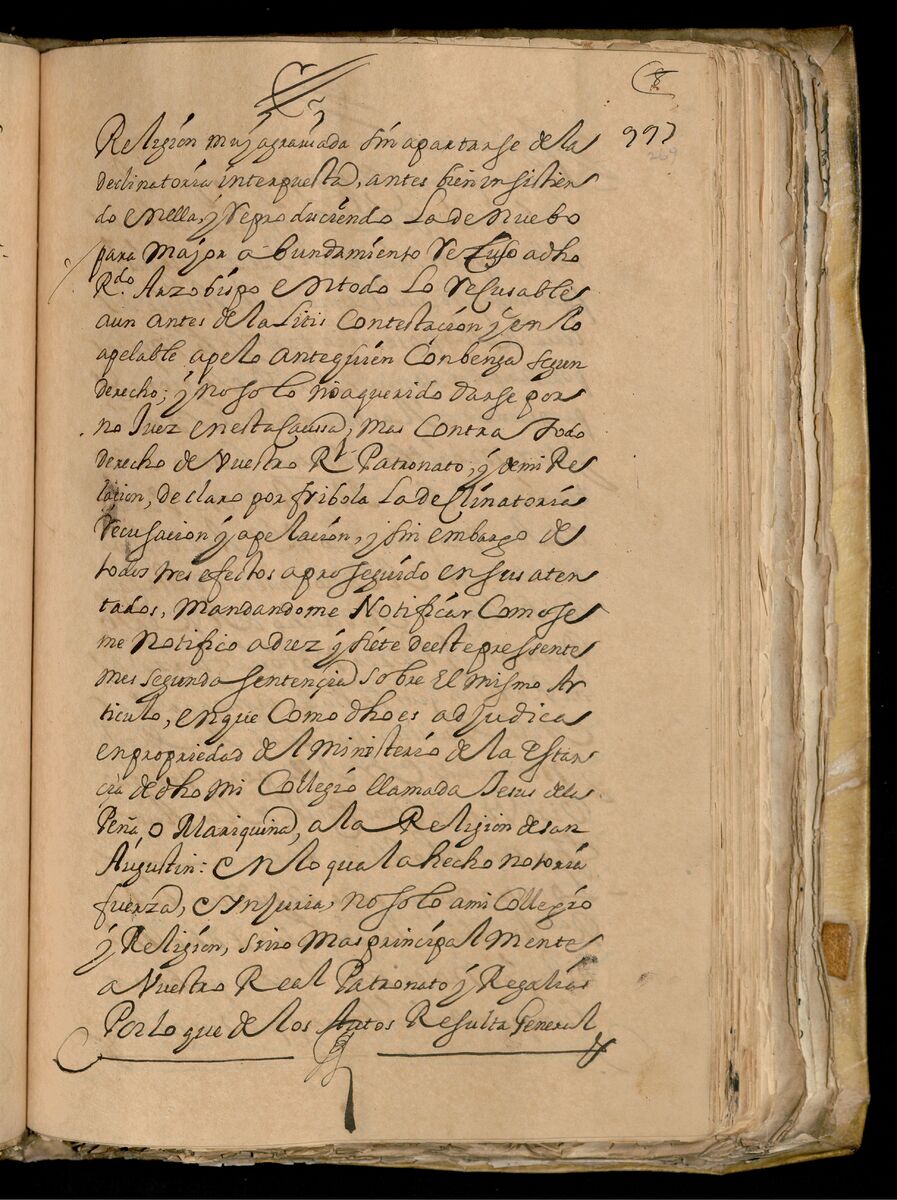 8
997
269
Religion muj agraviada sin apartarse de la
declinatoria interpuesta, antes bien insistien
do en ella, y reproduciendo la de nuebo
para major abundamiento recuso a dho
R.do Arzobispo en todo lo recusable
aun antes de la Litis Contestacion y en lo
apelable apelo ante quien Conbenga segun
derecho; y no solo no a querido darse por
no Juez en esta Caussa, mas contra todo
derecho de Vuestro Rl Patronato, y de mi Re
ligion, declaro por fribola la declinatoria
recusacion y apelacion, y sin embargo de
todos tres efectos a proseguido en sus aten
tados, mandandome Notificar Como se
me Notifico a diez y siete de este pressente
mes segunda sentençia sobre el mismo Ar
ticulo, en que como dho es adjudica
en propriedad del Ministerio de la Estan
cia de dho mi Collegio llamada Jesus de la
Peña, o Mariquina, a la Religion de san
Augustin: en lo qual a hecho notoria
fuerza, e Ynjuria, no solo a mi Collegio
y Religion, sino mas principalmente
a Vuestro Real Patronato y Regalias
Por lo que de los Autos Resulta General